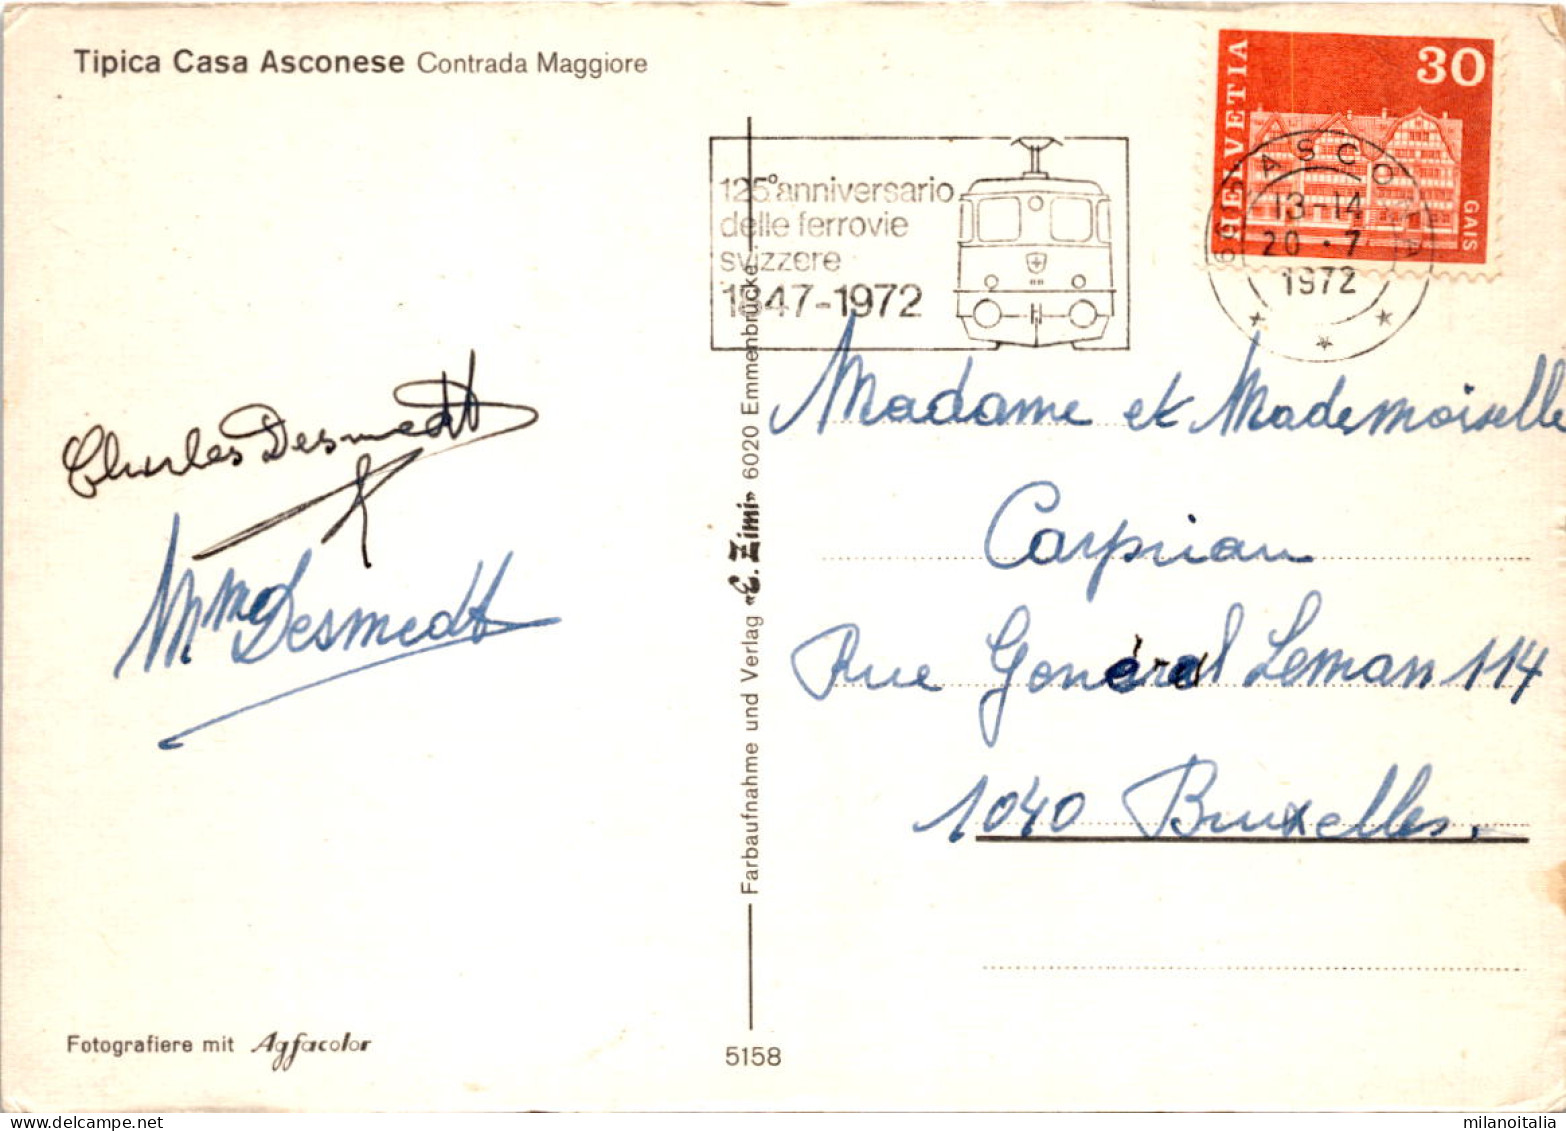 Tipica Casa Asconese Contrada Maggiore
HELVETIA
30
GAIS
125° anniversario
delle ferrovie
svizzere
1847-1972
ASCONA
13-14
20.7
1972
Charles Desmedt
Mme Desmedt
Madame et Mademoiselle
Carpriau
Rue Général Leman 114
1040 Bruxelles.
Farbaufnahme und Verlag «E. Zimi» 6020 Emmenbrücke
Fotografiere mit Agfacolor
5158
milanoitalia